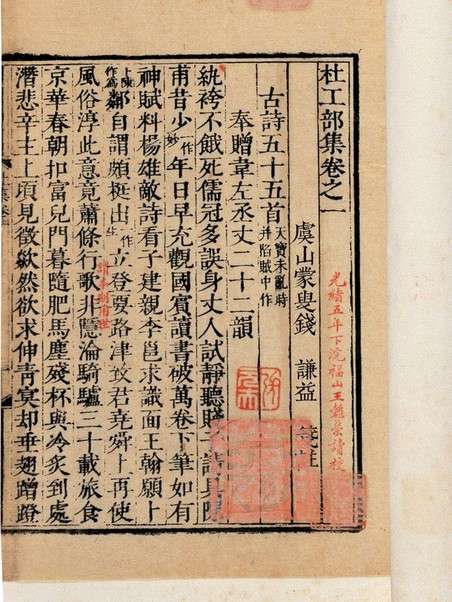 杜工部集卷之一
虞山蒙叟錢 謙益 箋註
光緒五年下浣福山王懿榮讀校
古詩五十五首 天寶未亂時并陷賊中作
奉贈韋左丞丈二十二韻
紈袴不餓死儒冠多誤身丈人試靜聽賤子請具陳
甫昔少一作妙年日早充觀國賓讀書破萬卷下筆如有
神賦料楊雄敵詩看子建親李邕求識面王翰願卜
卜陳作爲鄰自謂頗挺出一作生立登要路津致君堯舜上再使
風俗淳此意竟蕭條行歌非隱淪騎驢三十載旅食
京華春朝扣富兒門暮隨肥馬塵殘杯與冷炙到處
潛悲辛主上頃見徵歘然欲求伸青冥却垂翅蹭蹬